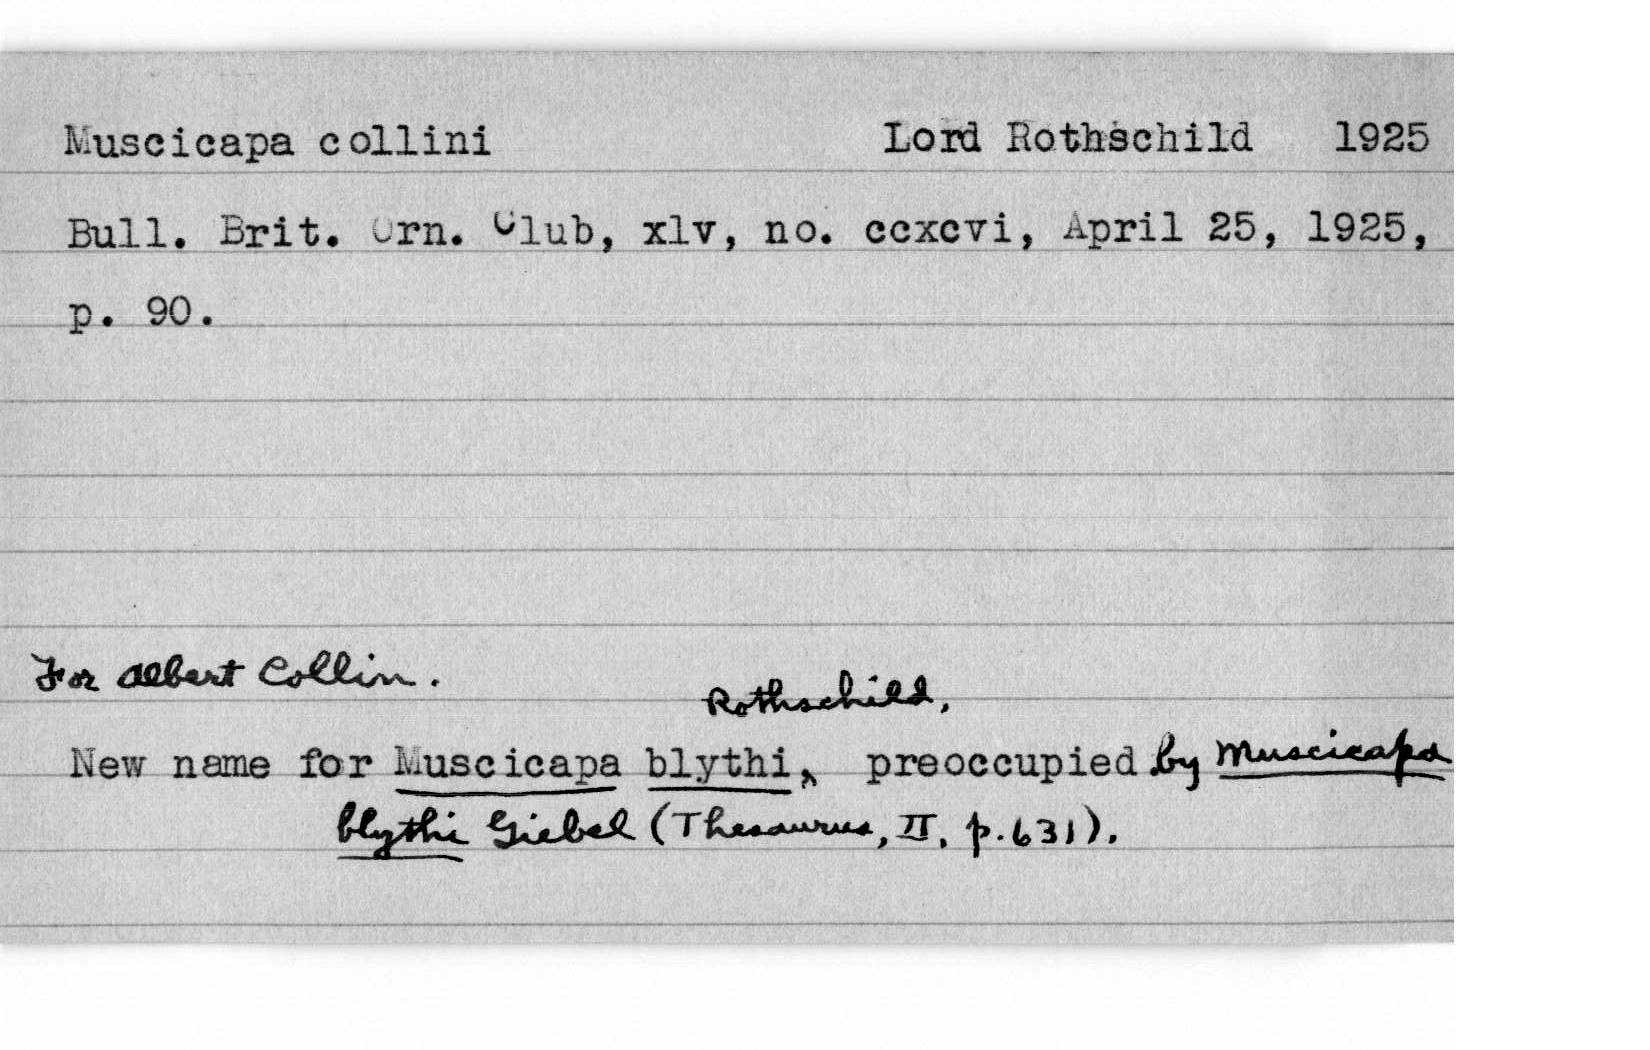 Muscicapa collini Lord Rothschild 1925
Bull. Brit. Orn. Club, xlv, no. ccxcvi, April 25, 1925,
p. 90.
For Albert Collin.
Rothschild,
New name for Muscicapa blythi, preoccupied by Muscicapa
blythi Giebel (Thesaurus, II, p. 631).